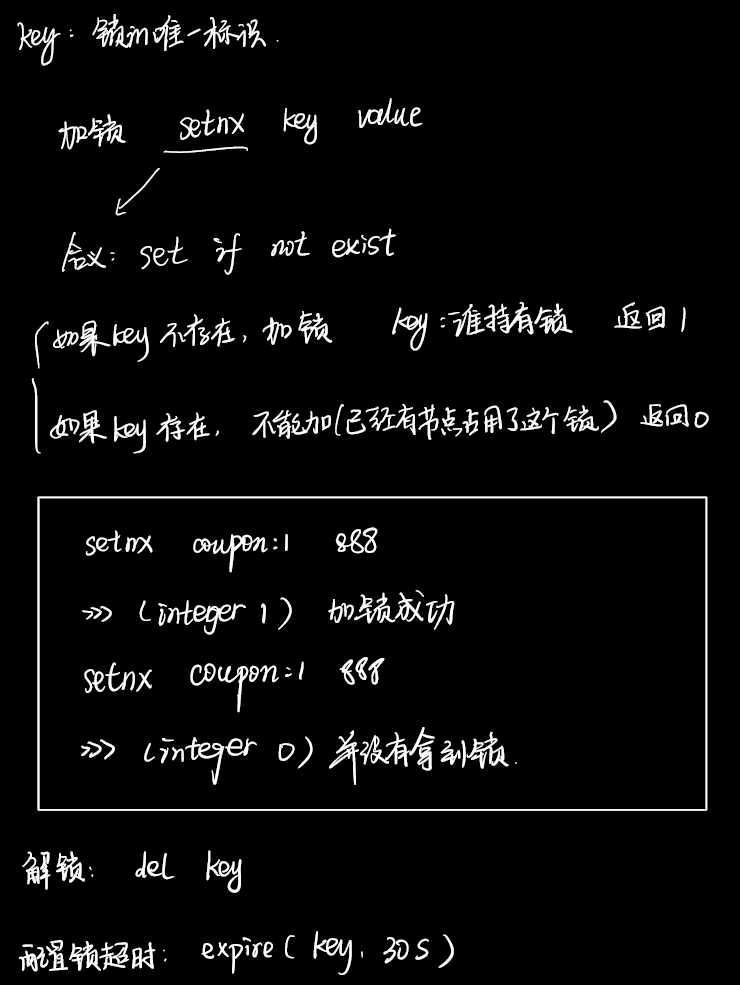 key: 锁的唯一标识.
加锁 setnx key value
含义: set if not exist
如果key不存在, 加锁 key:谁持有锁 返回1
如果key存在, 不能加(已经有节点占用了这个锁) 返回0
setnx coupon:1 888
>>> (integer 1) 加锁成功
setnx coupon:1 888
>>> (integer 0) 并没有拿到锁.
解锁: del key
配置锁超时: expire(key, 30s)